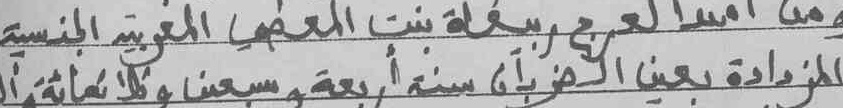 و من امينة لعرج ربيعة بنت المعطي المغربية الجنسية
المزدادة بعين الخربان سنة أربعة وسبعين وثلاثمائة وأ